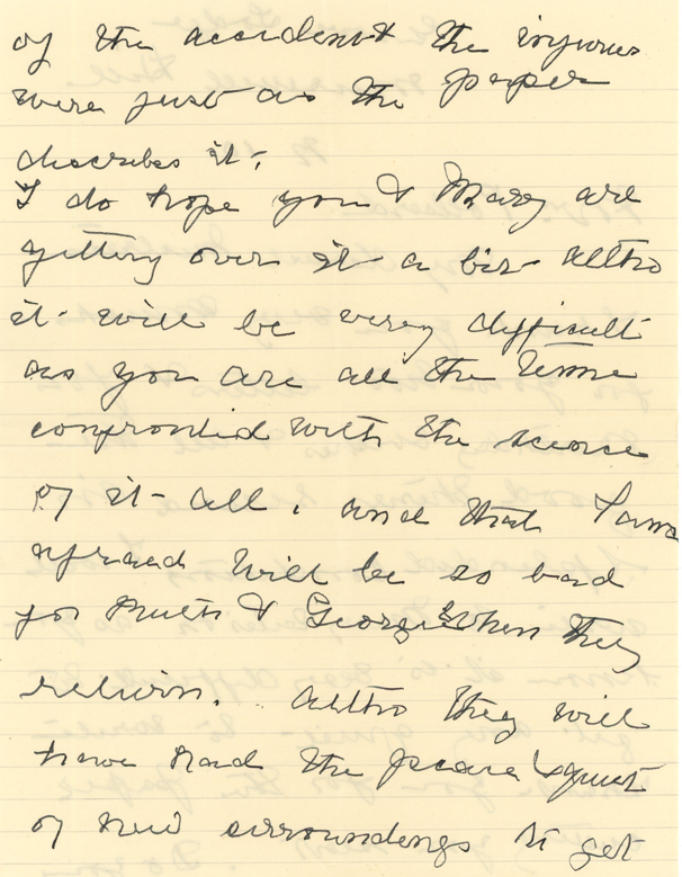 of the accident & the injuries
were just as the paper
describes it.
I do hope you & Mary are
getting over it a bit altho
it will be very difficult
as you are all the time
confronted with the scene
of it all, and that I am
afraid will be so bad
for Ruth & George when they
return. altho they will
have had the peace & quiet
of new surroundings to get